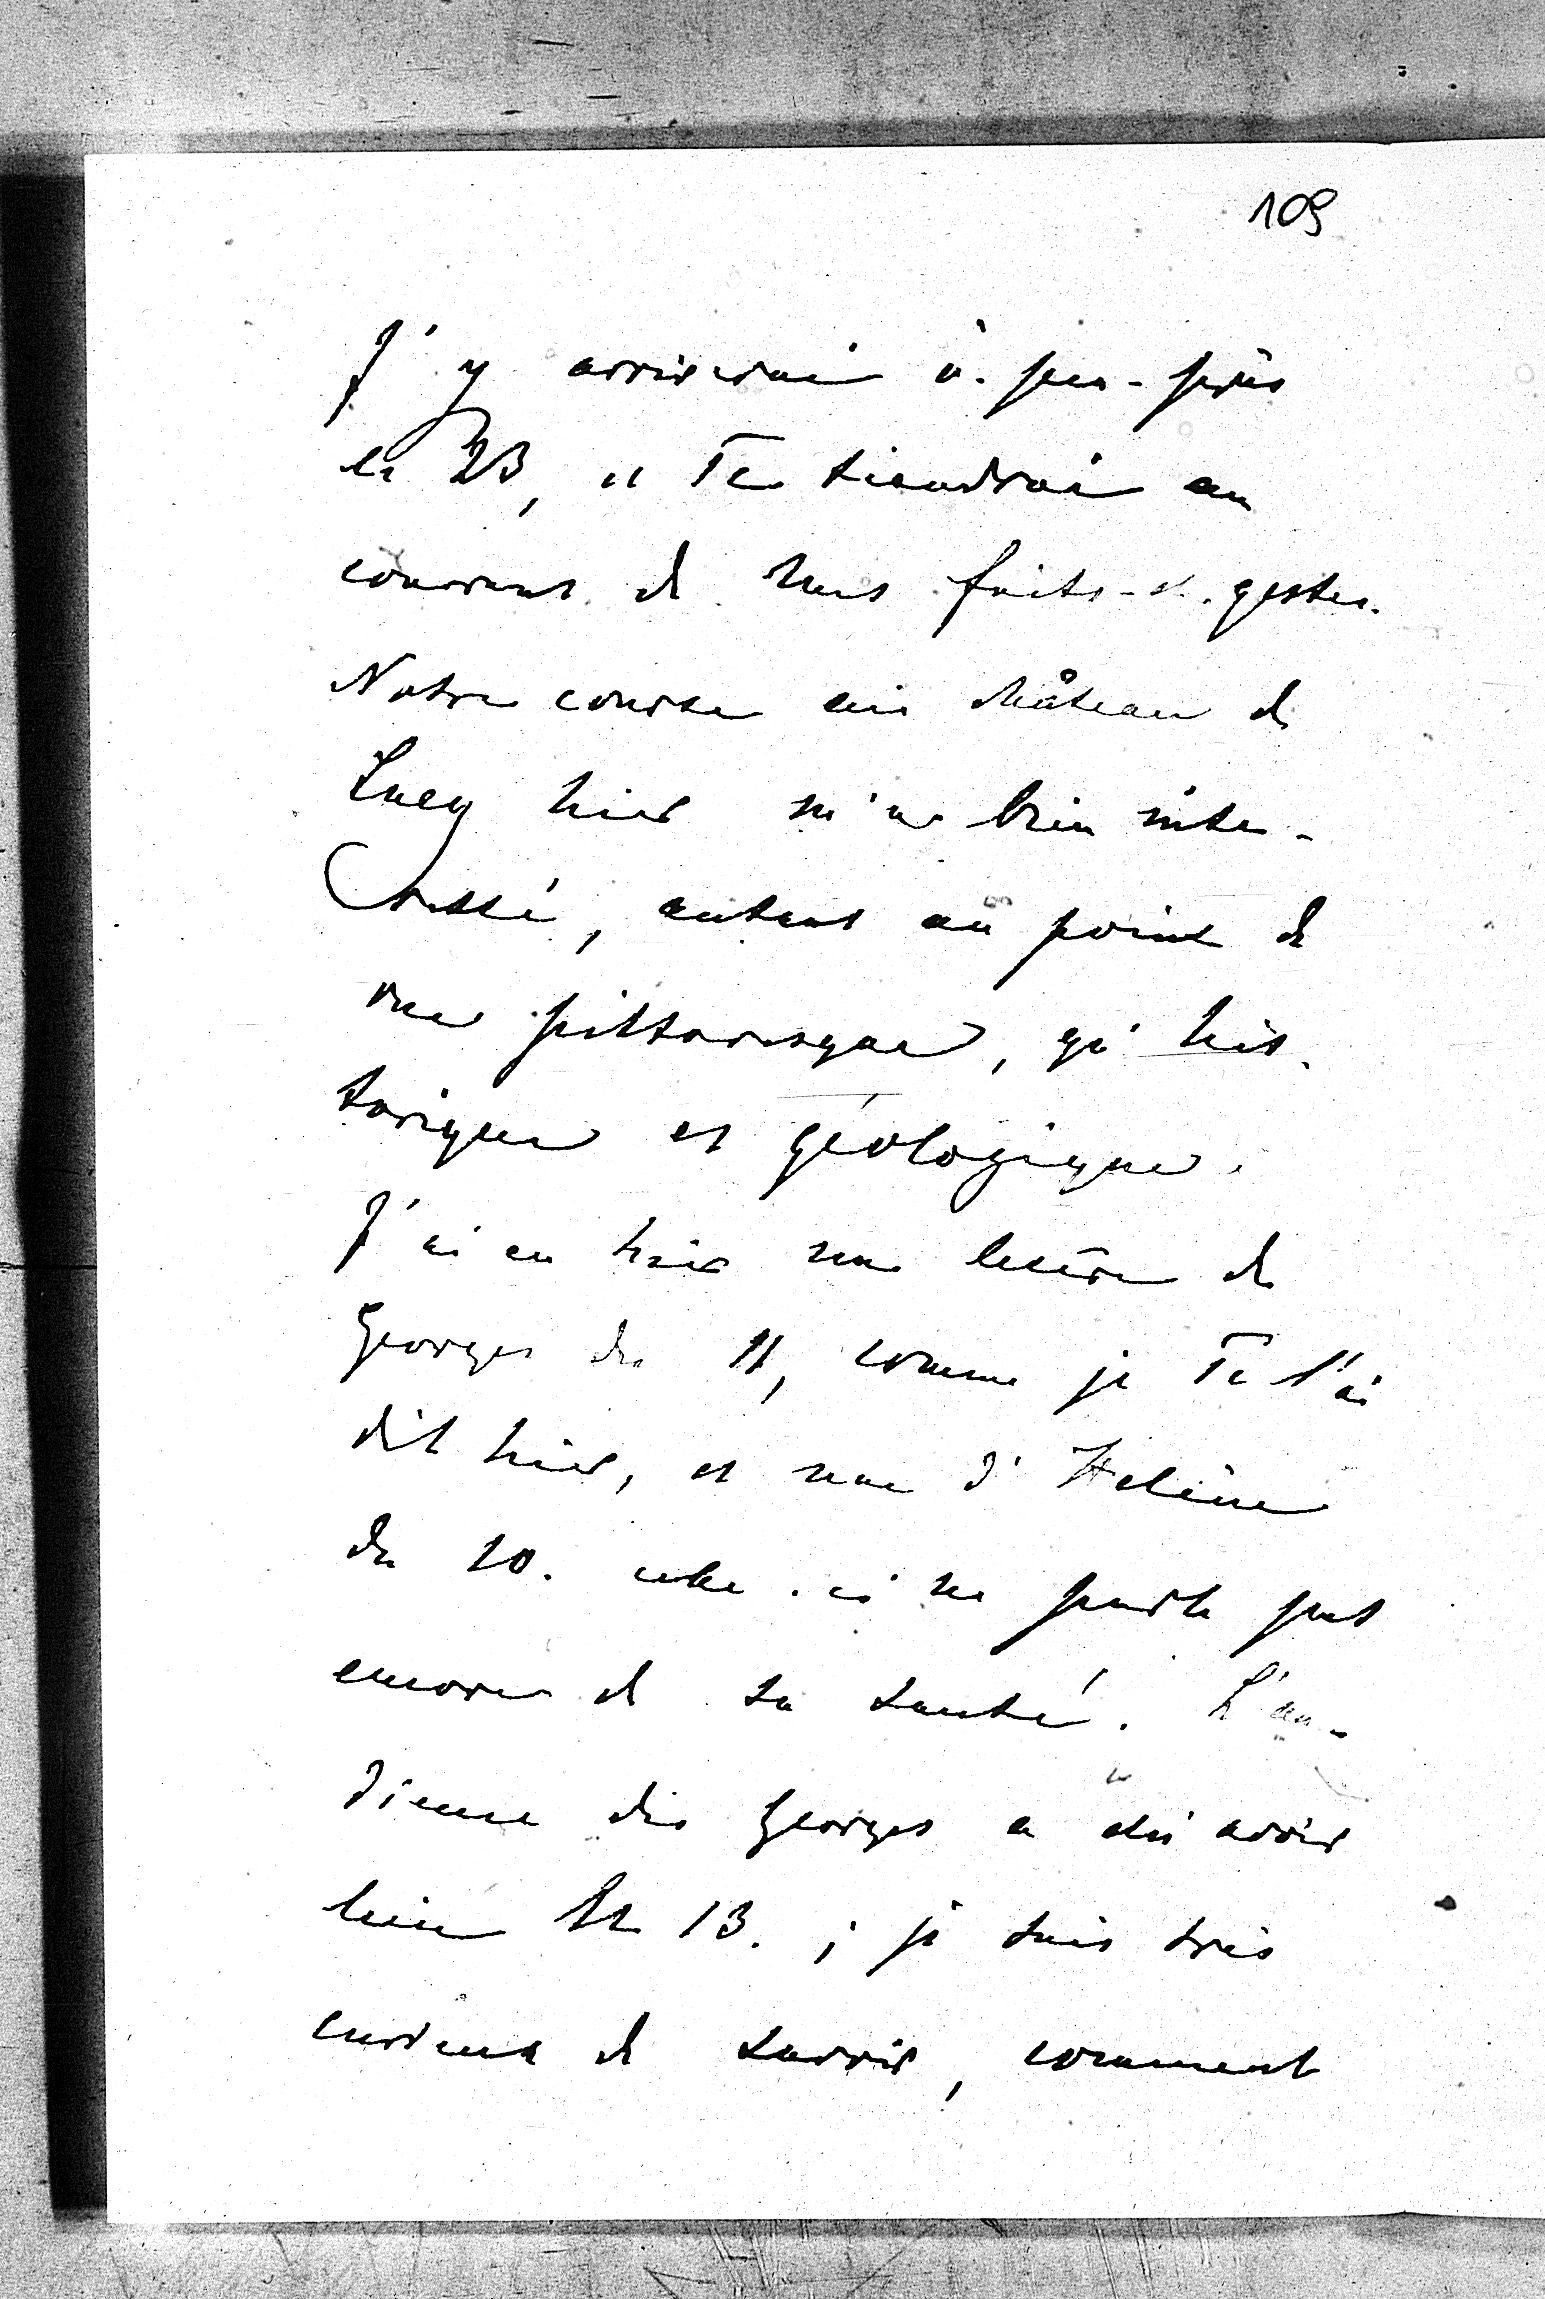 109
J'y arriverai à-peu-près
le 23, et Te tiendrai au
courant de nos faits-et-gestes.
Notre course au château de
hier m'a bien inté-
ressé, autant au point de
vue pittoresque, qu'his-
torique et géologique.
J'ai eu hier une lettre de
Georges du 11, comme je Te l'ai
dit hier, et une d'Helène
du 10. celle-ci ne parle pas
encore de sa santé. L'au-
dience de Georges a dû avoir
lieu le 13. ; je suis très
curieux de savoir, comment